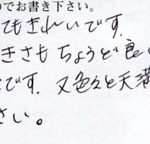 のでお書き下さい。
てもきれいです。
きさもちょうど良い
です。又色々と天満
さい。